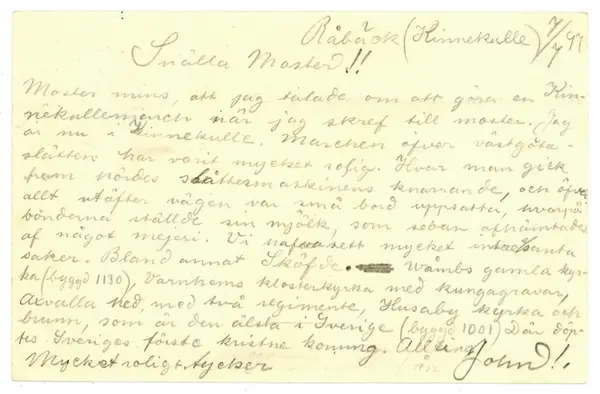 Råbäck (Kinnekulle) 7/7 97
Snälla Moster!!
Moster mins, att jag talade om att göra en Kin-
nekullemarch när jag skref till moster. Jag
är nu i Kinnekulle. Marchen öfver västgöta-
slätten har varit mycket rolig. Hvar man gick
fram hördes slåttesmaskinens knarrande, och öfver
allt utäfter vägen var små bord uppsatta, hvarpå
bönderna stälde sin mjölk, som sedan afhämtades
af något mejeri. Vi hafva sett mycket intressanta
saker. Bland annat Sköfde. Våmbs gamla kyr-
ka (byggd 1130), Varnhems klosterkyrka med kungagravar,
Axvalla hed, med två regimente, Husaby kyrka och
brunn, som är den älsta i Sverige (byggd 1001) Där döp-
tes Sveriges förste kristne konung. Allting
Mycket roligt tycker John!.